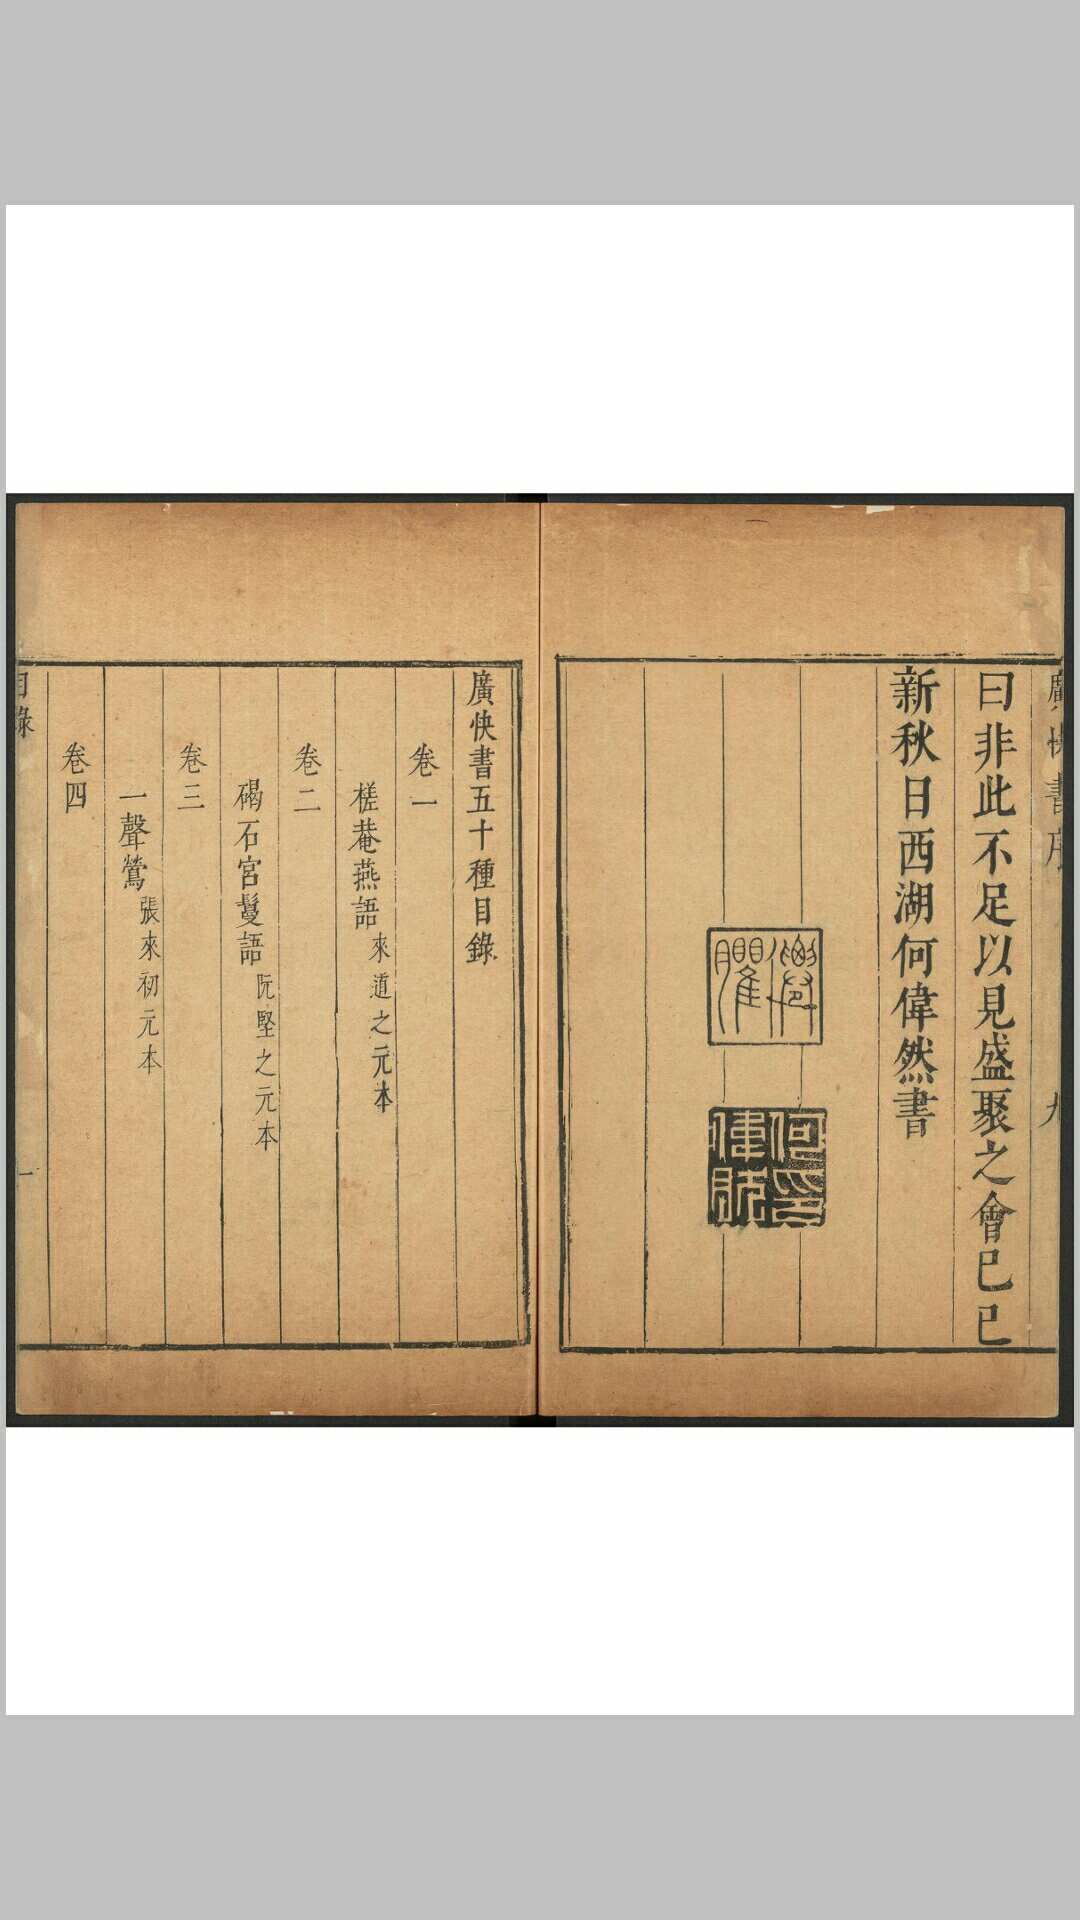 廣快書序
九
曰非此不足以見盛聚之會巳巳
新秋日西湖何偉然書
僊臞
何偉然印
廣快書五十種目錄
卷一
槎菴燕語 來道之元本
卷二
碣石宮鬘語 阮堅之元本
卷三
一聲鶯 張來初元本
卷四
目錄
一